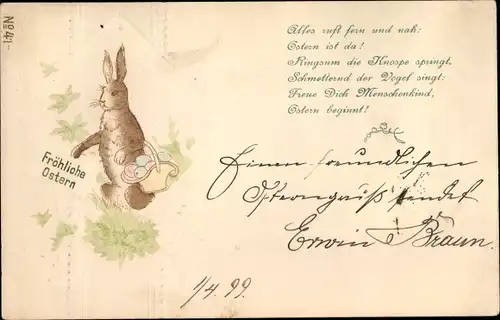 No 41.
Alles ruft fern und nah:
Ostern ist da!
Ringsum die Knospe springt,
Schmetternd der Vogel singt:
Freue Dich Menschenkind,
Ostern beginnt!
Fröhliche
Ostern
Einen freundlichen
Ostergruß sendet
Erwin Braun.
1/4. 99.